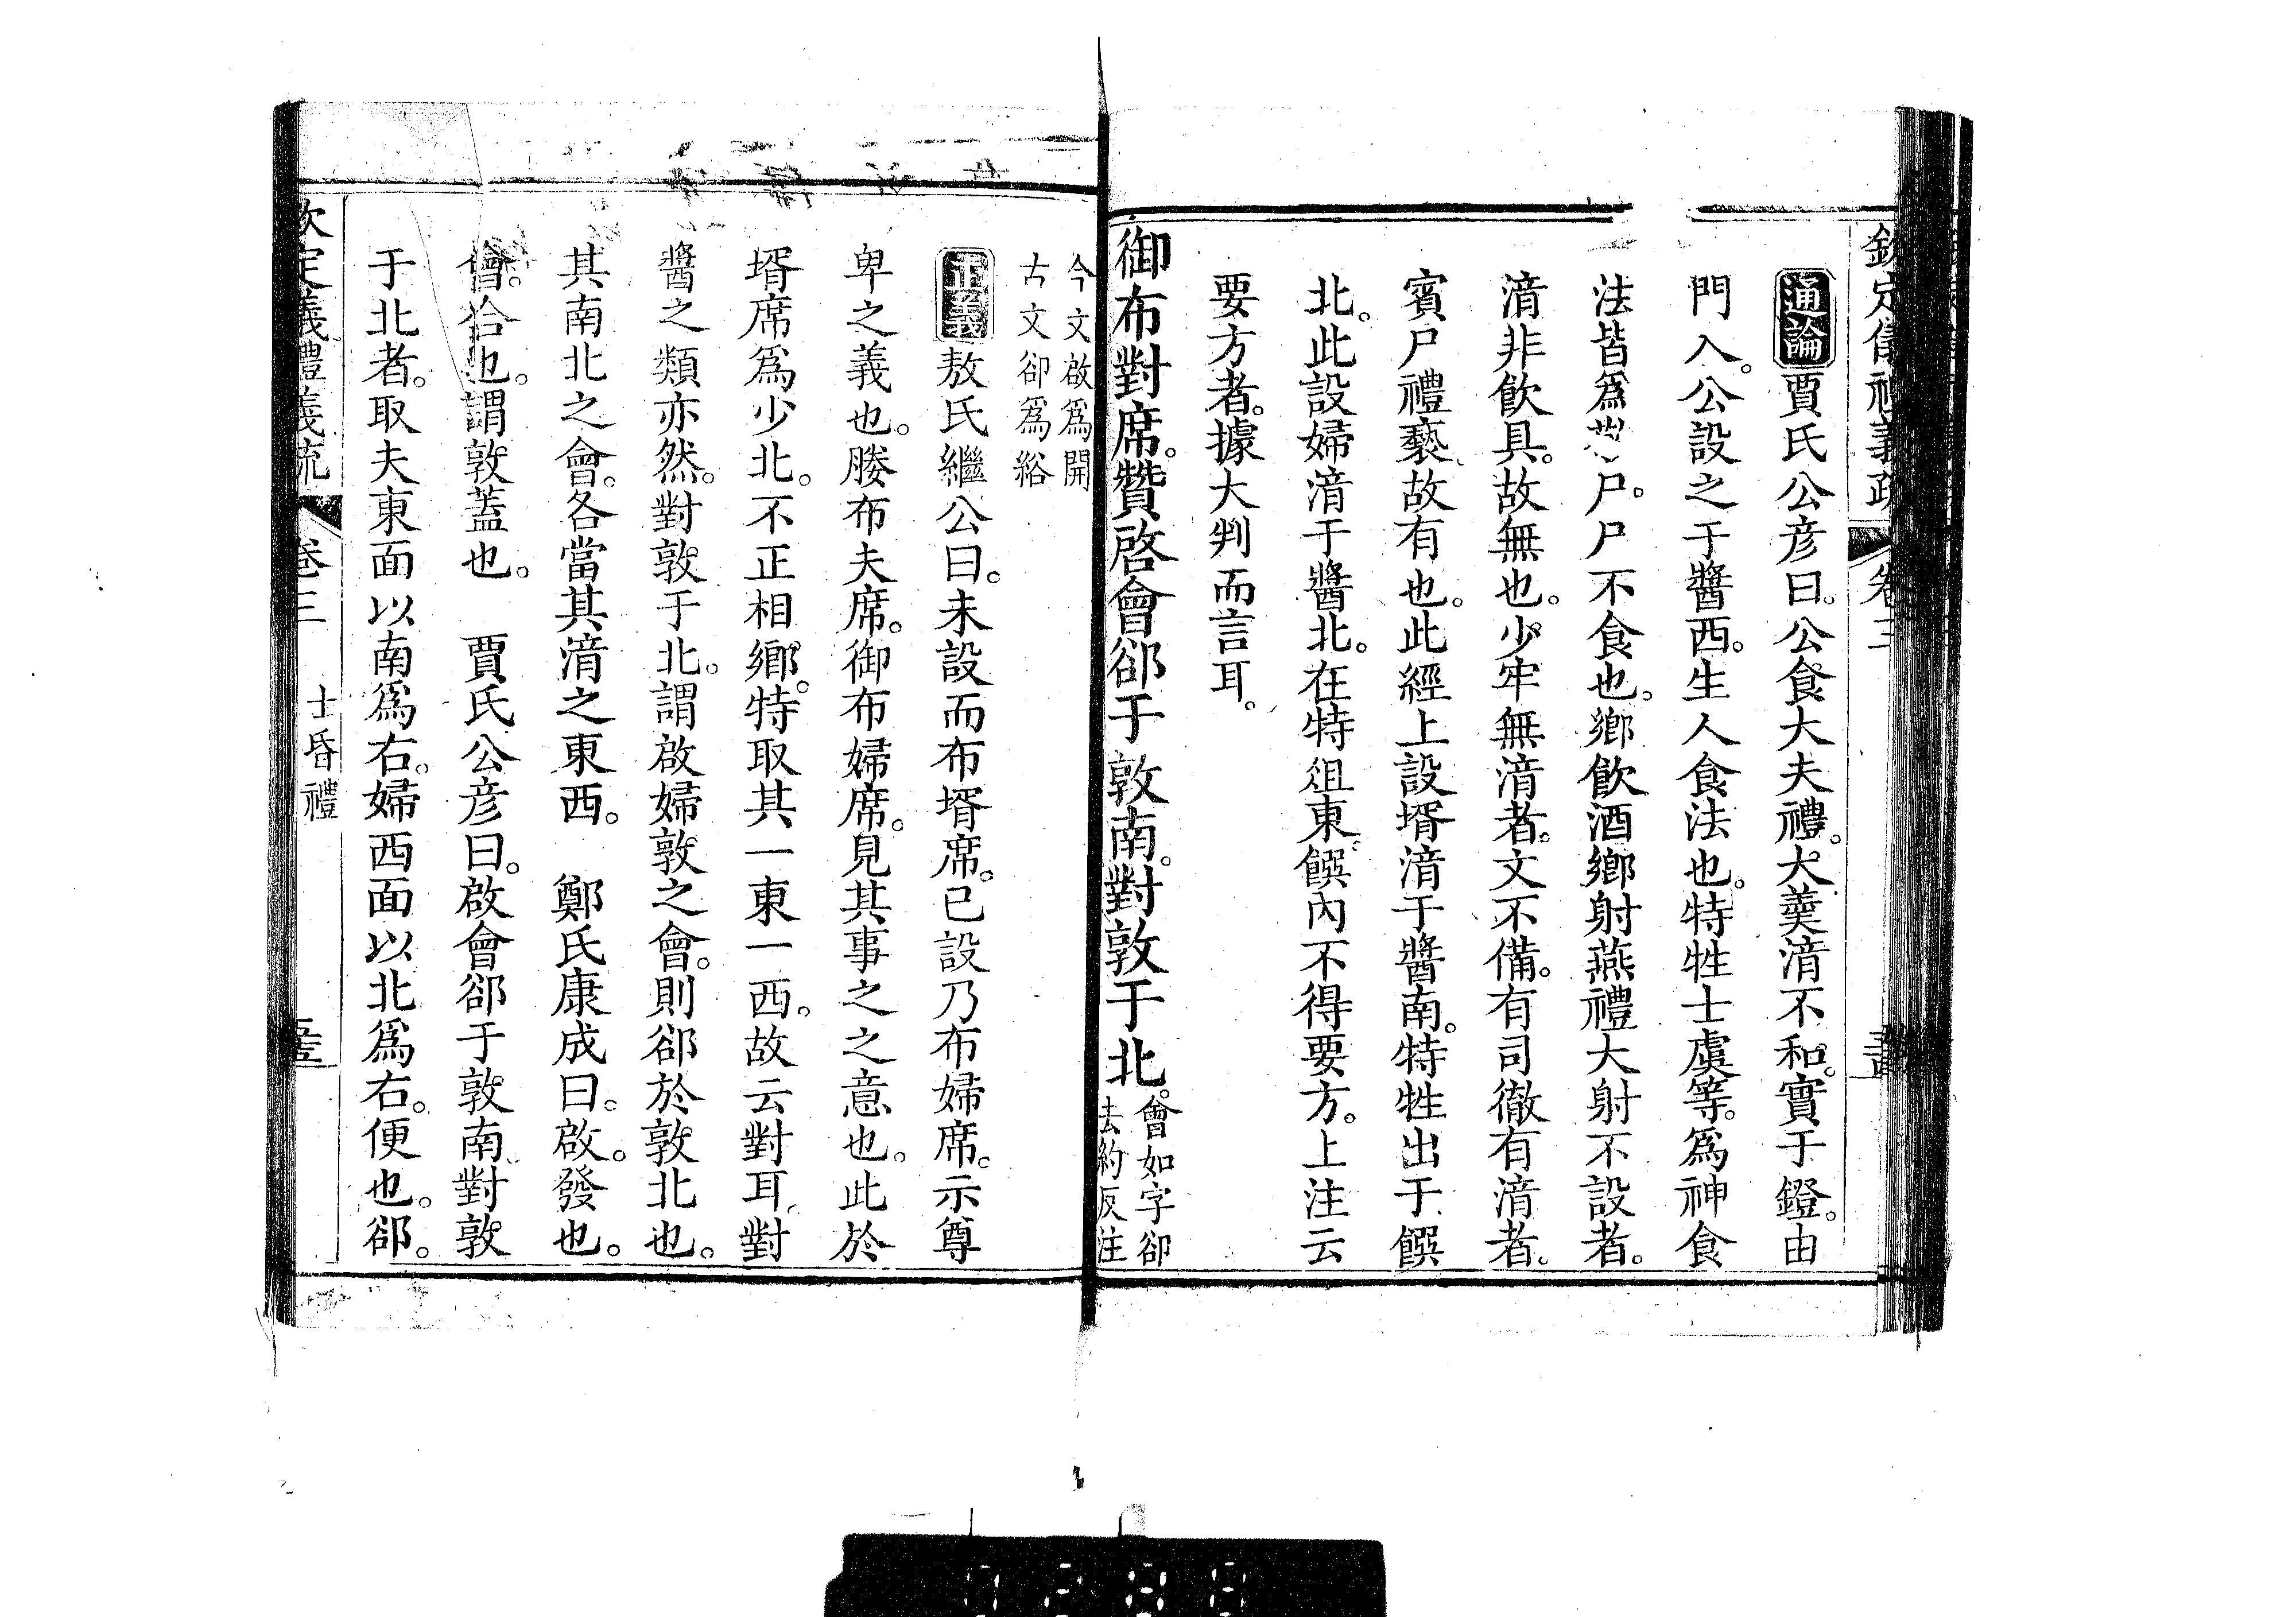 欽定儀禮義疏 卷三
通論賈氏公彦曰。公食大夫禮。大羹湇不和。實于鐙。由
門入。公設之于醬西。生人食法也。特牲士虞等。爲神食
法皆爲 尸。尸不食也。鄉飲酒鄉射燕禮大射不設者。
湇非飲具。故無也。少牢無湇者。文不備。有司徹有湇者。
賓尸禮褻。故有也。此經上設壻湇于醬南。特牲出于饌
北。此設婦湇于醬北。在特俎東。饌內不得要方。上注云
要方者。據大判而言耳。
御布對席。贊啓會郤于敦南。對敦于北。會如字郤
去約反注
今文啟爲開
古文郤爲綌
正義敖氏繼公曰。未設而布壻席。已設乃布婦席。示尊
卑之義也。媵布夫席。御布婦席。見其事之之意也。此於
壻席爲少北。不正相鄉。特取其一東一西。故云對耳。對
醬之類亦然。對敦于北。謂啟婦敦之會。則郤於敦北也。
其南北之會。各當其湇之東西。 鄭氏康成曰。啟。發也。
會。合也。謂敦蓋也。 賈氏公彦曰。啟會郤于敦南對敦
于北者。取夫東面以南爲右。婦西面以北爲右。便也。郤。
欽定儀禮義疏 卷三 士昏禮